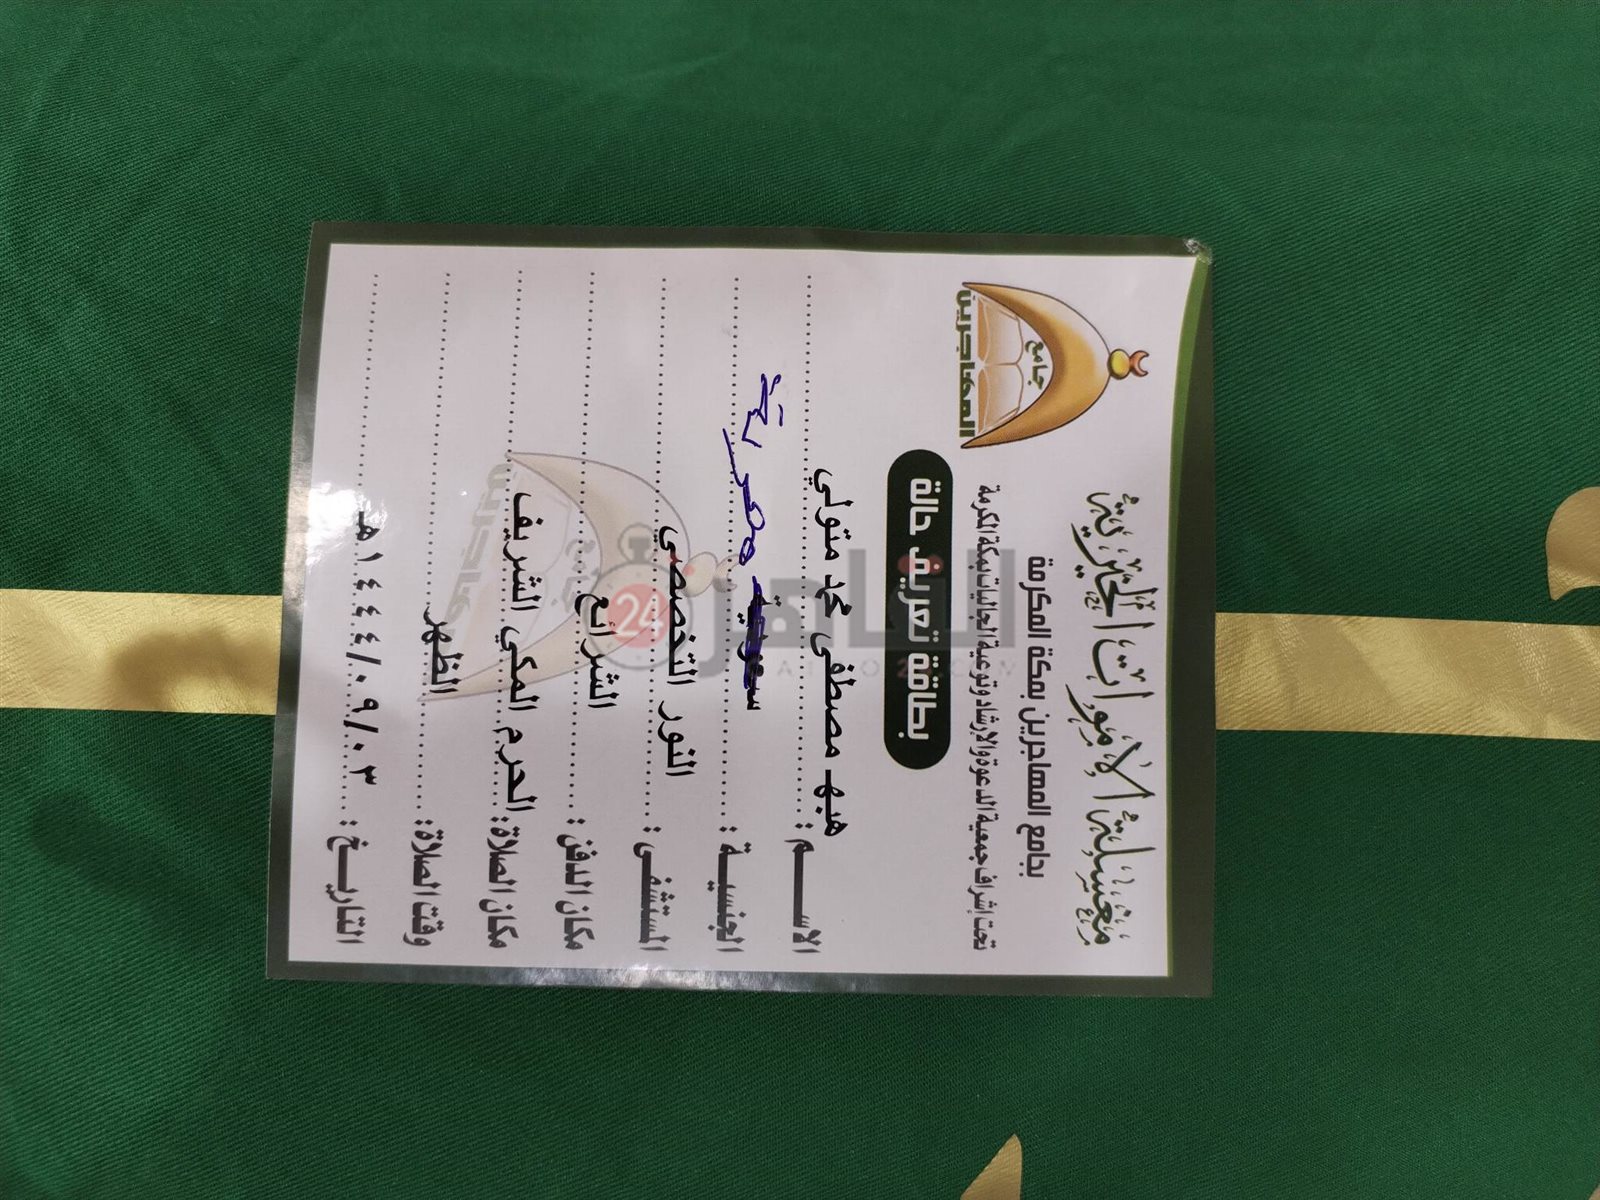 مغسلة الأموات الخيرية
بجامع المهاجرين بمكة المكرمة
تحت إشراف جمعية الدعوة والإرشاد وتوعية الجاليات بمكة المكرمة
جامع
المهاجرين
بطاقة تعريف حالة
الاســـــم : هبه مصطفى محمد متولي
الجنسيـة : سعودية مصرية
المستشفى : النور التخصصي
مكان الدفن : الشرائع
مكان الصلاة : الحرم المكي الشريف
وقت الصلاة : الظهر
التاريـــخ : ١٤٤٤/٠٩/٠٣هـ
القاهرة 24
CAIRO24.COM